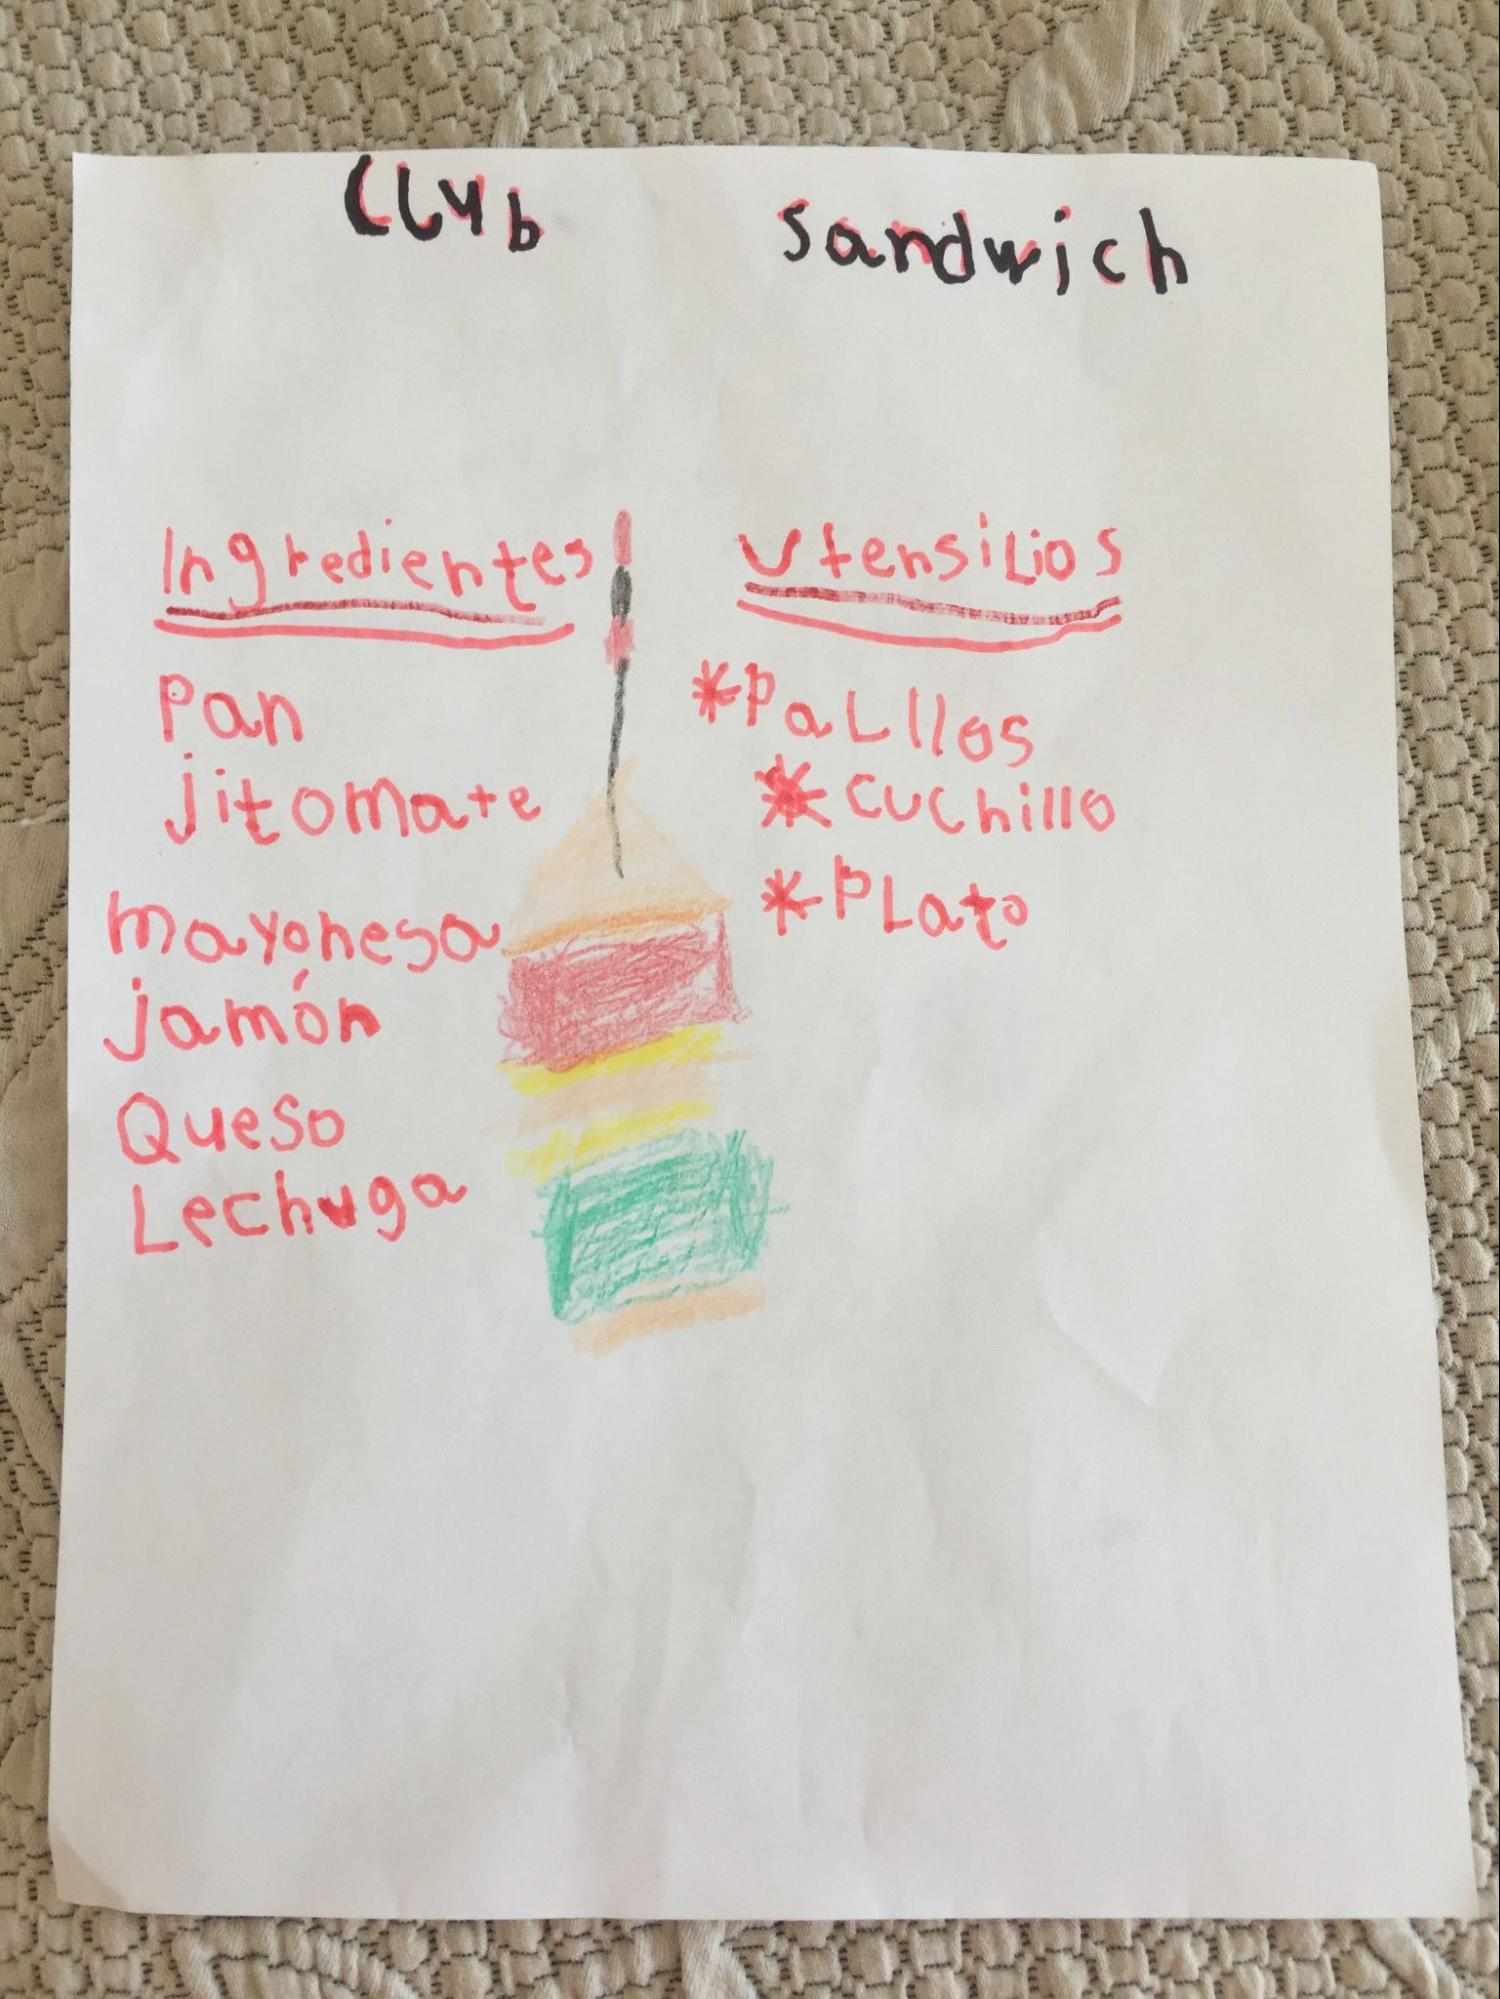 Club Sandwich
Ingredientes
Pan
jitomate
mayonesa
jamón
Queso
Lechuga
Utensilios
*PaLllos
*cuchillo
*PLato